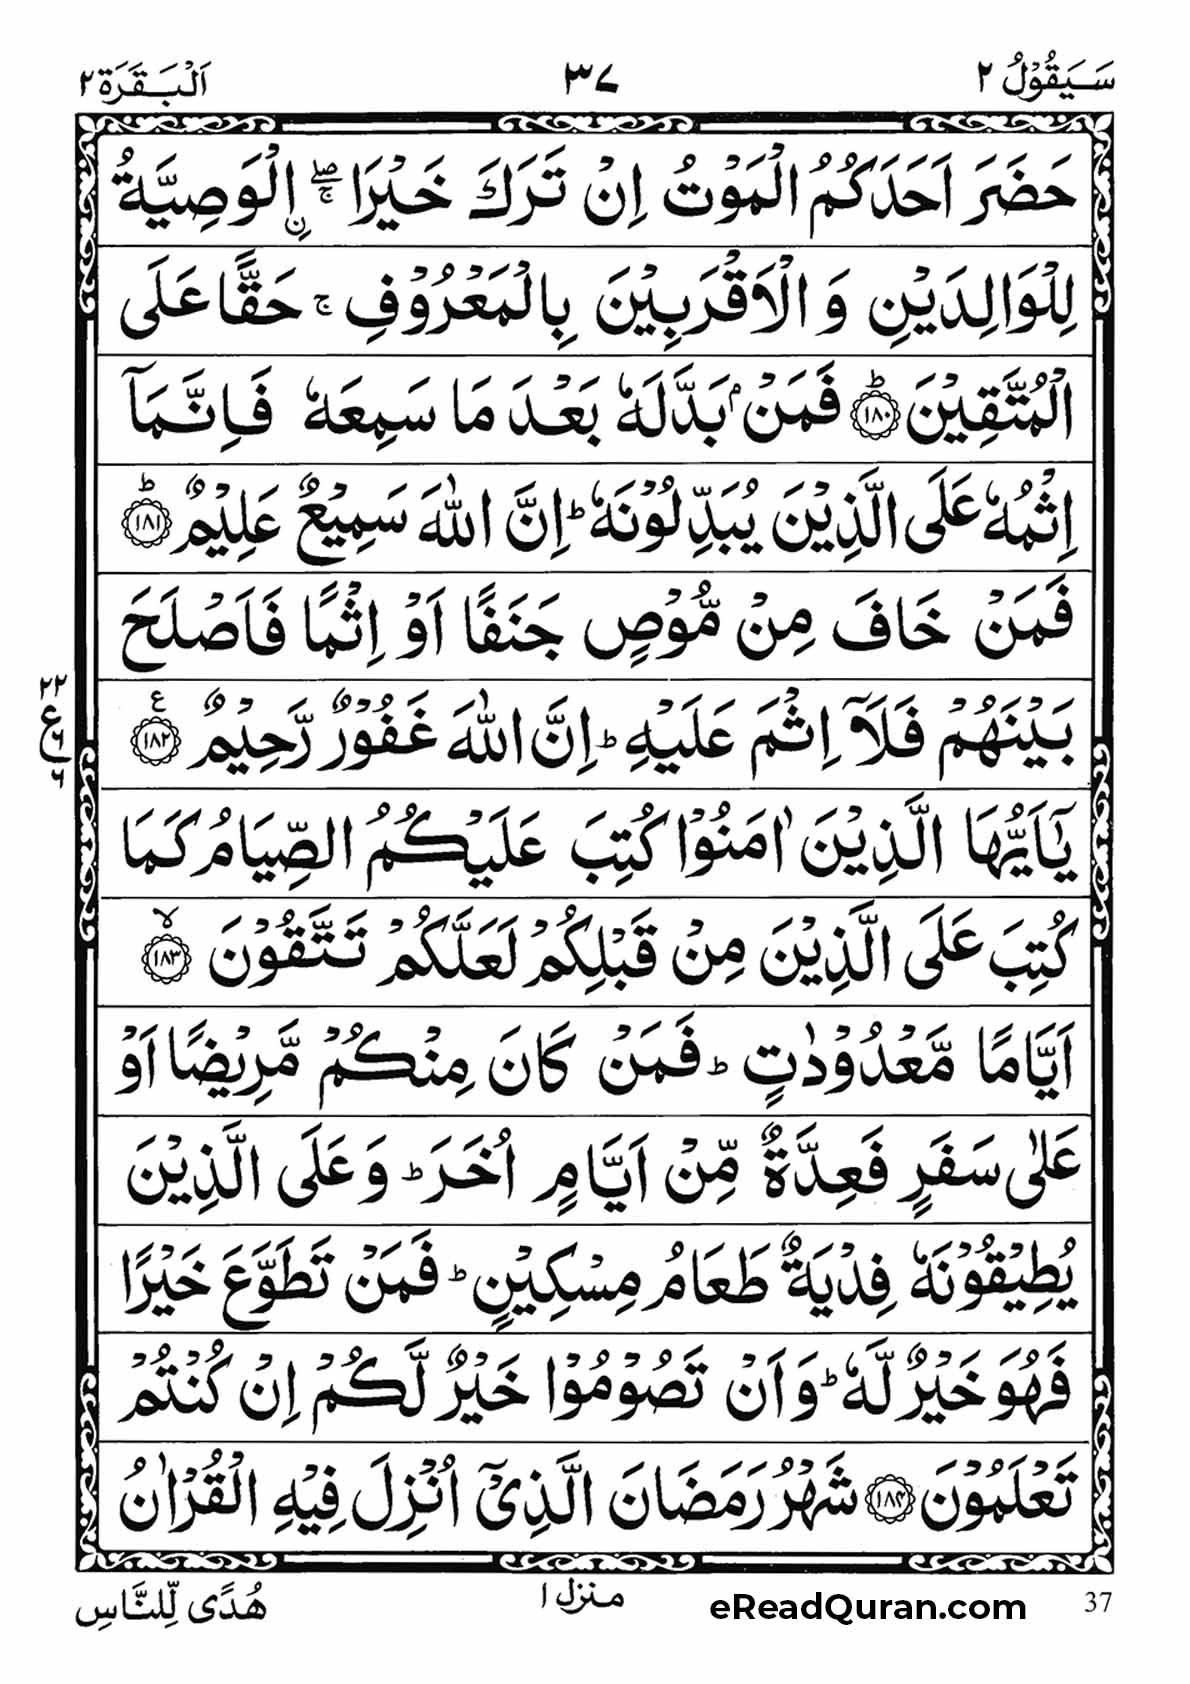 سَيَقُوْلُ ٢
٣٧
اَلْبَقَرَة ٢
حَضَرَ اَحَدَكُمُ الْمَوْتُ اِنْ تَرَكَ خَيْرَا ۖۚ اۨلْوَصِيَّةُ
لِلْوَالِدَيْنِ وَ الْاَقْرَبِيْنَ بِالْمَعْرُوْفِ ۚ حَقًّا عَلَى
الْمُتَّقِيْنَ ؕ ﴿١٨٠﴾ فَمَنْۢ بَدَّلَهٗ بَعْدَ مَا سَمِعَهٗ فَاِنَّمَاۤ
اِثْمُهٗ عَلَى الَّذِيْنَ يُبَدِّلُوْنَهٗ ؕ اِنَّ اللّٰهَ سَمِيْعٌ عَلِيْمٌ ؕ ﴿١٨١﴾
فَمَنْ خَافَ مِنْ مُّوْصٍ جَنَفًا اَوْ اِثْمًا فَاَصْلَحَ
بَيْنَهُمْ فَلَاۤ اِثْمَ عَلَيْهِ ؕ اِنَّ اللّٰهَ غَفُوْرٌ رَّحِيْمٌ ع ﴿١٨٢﴾
٢٢
ع
٦
٦
يٰۤاَيُّهَا الَّذِيْنَ اٰمَنُوْا كُتِبَ عَلَيْكُمُ الصِّيَامُ كَمَا
كُتِبَ عَلَى الَّذِيْنَ مِنْ قَبْلِكُمْ لَعَلَّكُمْ تَتَّقُوْنَ ۙ ﴿١٨٣﴾
اَيَّامًا مَّعْدُوْدٰتٍ ؕ فَمَنْ كَانَ مِنْكُمْ مَّرِيْضًا اَوْ
عَلٰى سَفَرٍ فَعِدَّةٌ مِّنْ اَيَّامٍ اُخَرَ ؕ وَ عَلَى الَّذِيْنَ
يُطِيْقُوْنَهٗ فِدْيَةٌ طَعَامُ مِسْكِيْنٍ ؕ فَمَنْ تَطَوَّعَ خَيْرًا
فَهُوَ خَيْرٌ لَّهٗ ؕ وَ اَنْ تَصُوْمُوْا خَيْرٌ لَّكُمْ اِنْ كُنْتُمْ
تَعْلَمُوْنَ ﴿١٨٤﴾ شَهْرُ رَمَضَانَ الَّذِيْۤ اُنْزِلَ فِيْهِ الْقُرْاٰنُ
37
eReadQuran.com
منزل ١
هُدًى لِّلنَّاسِ